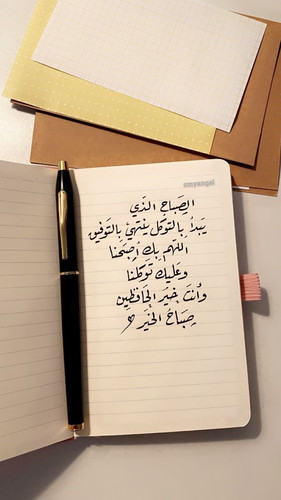 omyangel
الصَباح الذَي
يَبدأ بالتوَكل ينتهي بالتَوفيق
اللهّم بك أصبَحنا
وعَليك توَكلنا
وأنتَ خيَر الحَافظين
صِبَاحَ الخيَر